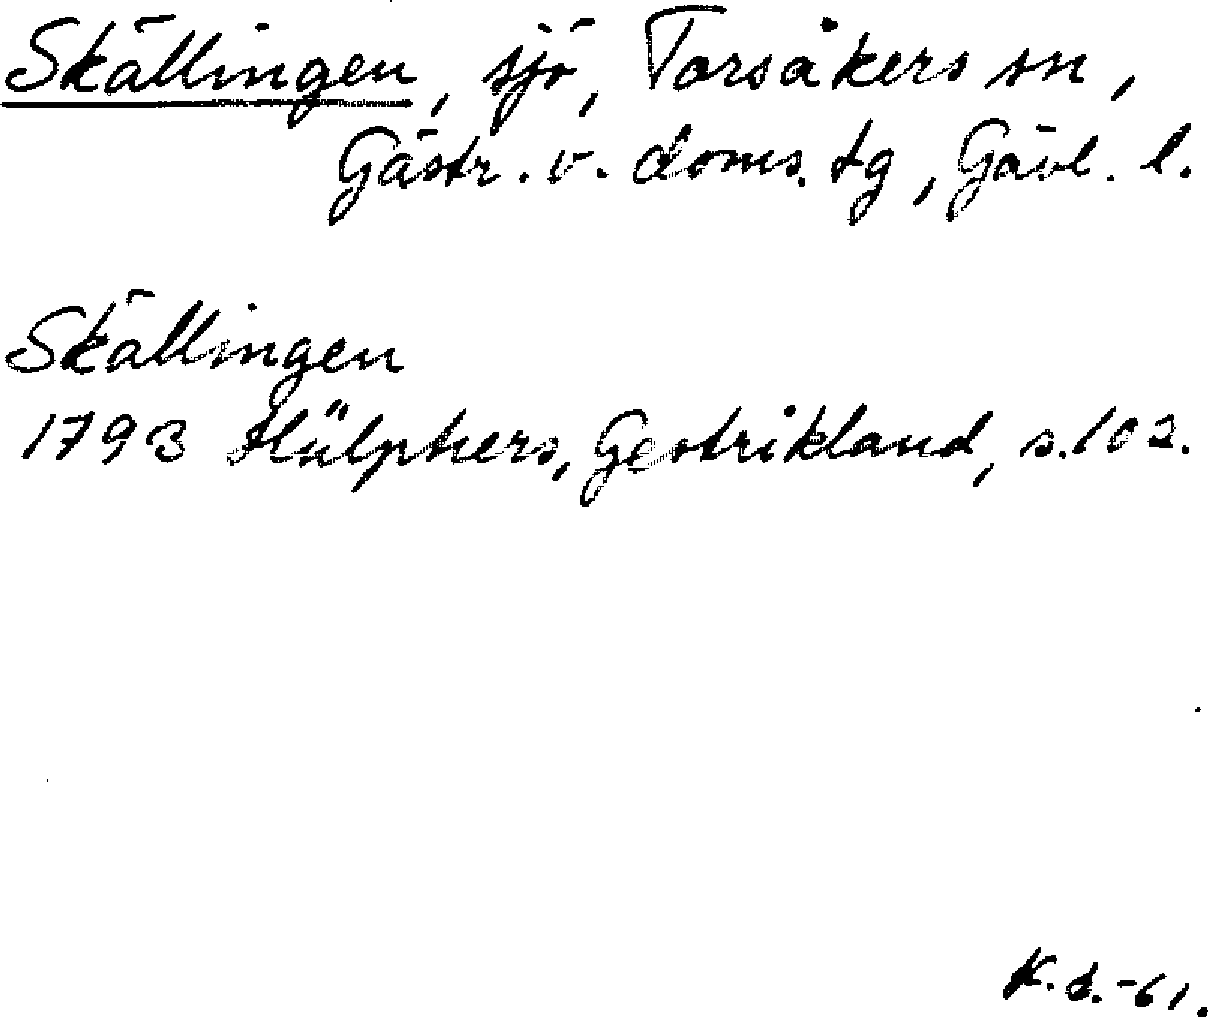 Skällingen, sjö, Torsåkers sn,
Gästr. v. doms. tg, Gävl. l.
Skällingen
1793 Hülphers, Gestrikland, s. 102.
K. d. -61.